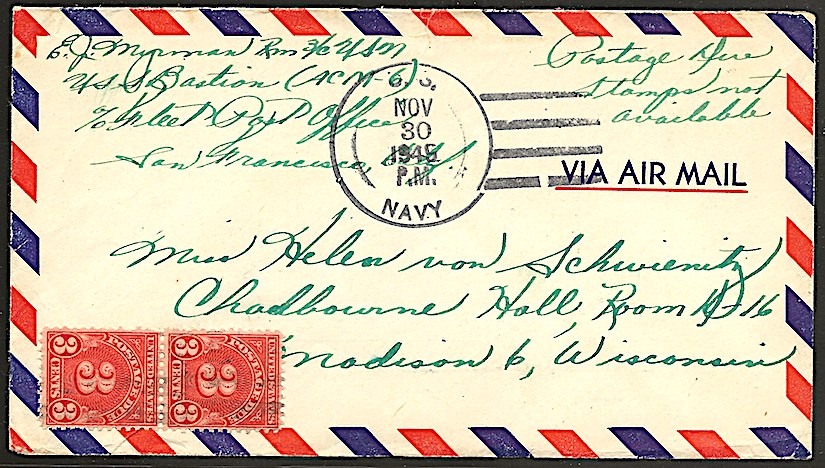 E.J. Myrman Rm 3/c USN
U.S.S. Bastion (ACM-6)
℅ Fleet Post Office
San Francisco, Cal.
Postage Due
Stamps not
available
U.S.
NOV
30
1945
P.M.
NAVY
VIA AIR MAIL
Miss Helen von Schwienitz
Chadbourne Hall, Room 16
Madison 6, Wisconsin
POSTAGE DUE
3
3
3
CENTS
UNITED STATES
POSTAGE DUE
3
3
3
CENTS
UNITED STATES